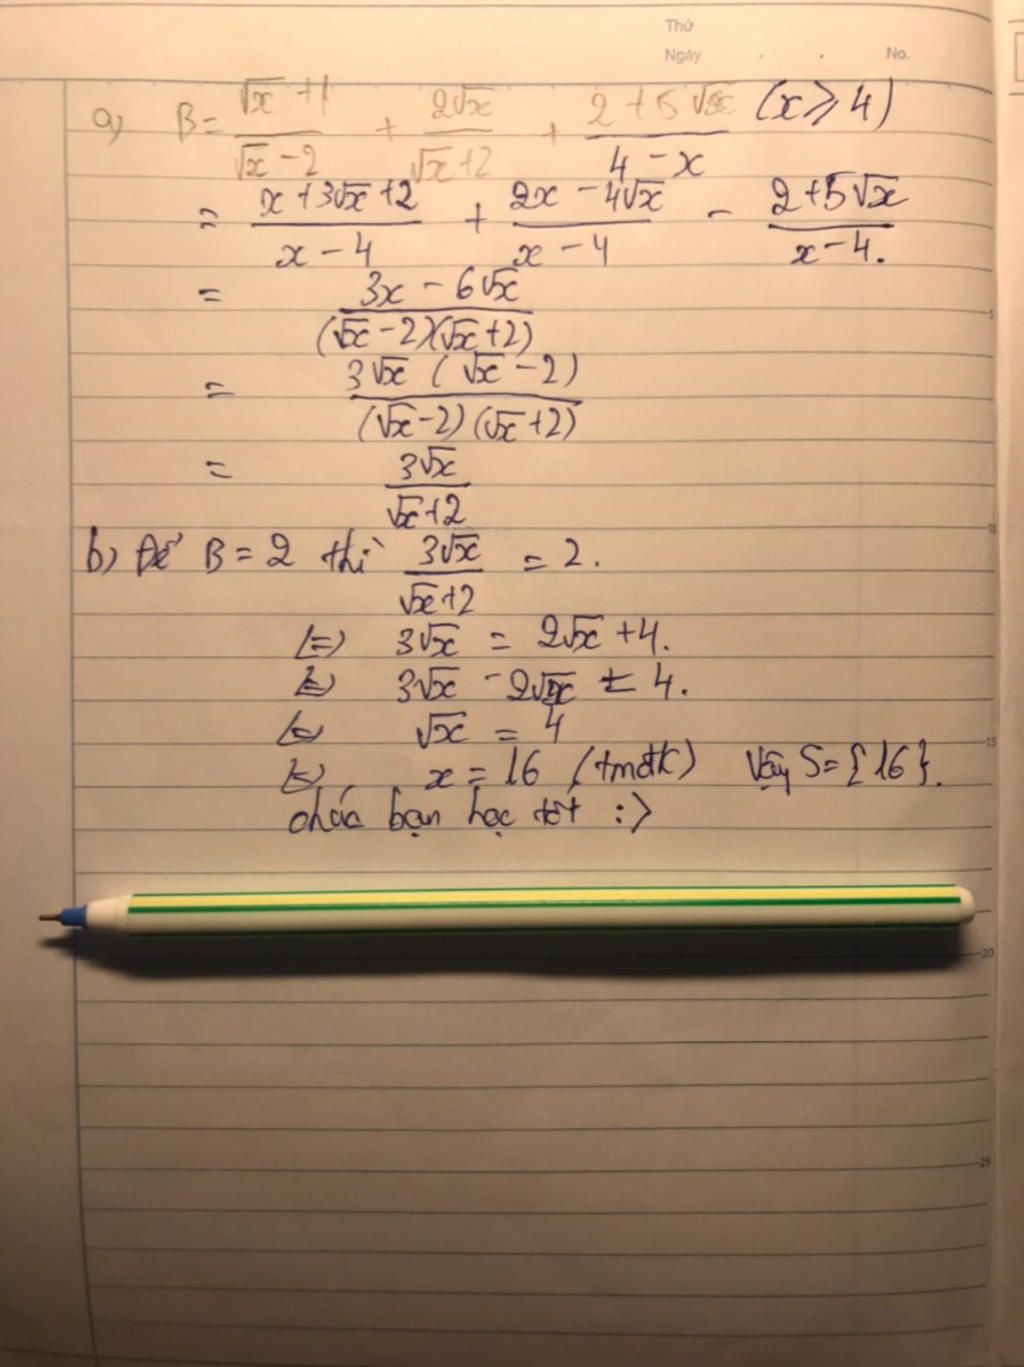 Thứ
Ngày . . No.
a) B = (√x + 1)/(√x - 2) + 2√x/(√x + 2) + (2 + 5√x)/(4 - x) (x ⩾ 4)
= (x + 3√x + 2)/(x - 4) + (2x - 4√x)/(x - 4) - (2 + 5√x)/(x - 4).
= (3x - 6√x)/((√x - 2)(√x + 2))
= 3√x (√x - 2)/((√x - 2)(√x + 2))
= 3√x/(√x + 2)
b) Để B = 2 thì 3√x/(√x + 2) = 2.
<=> 3√x = 2√x + 4.
<=> 3√x - 2√x = 4.
<=> √x = 4
<=> x = 16 (tmđk) Vậy S = {16}.
chúc bạn học tốt :>
5
10
15
20
25